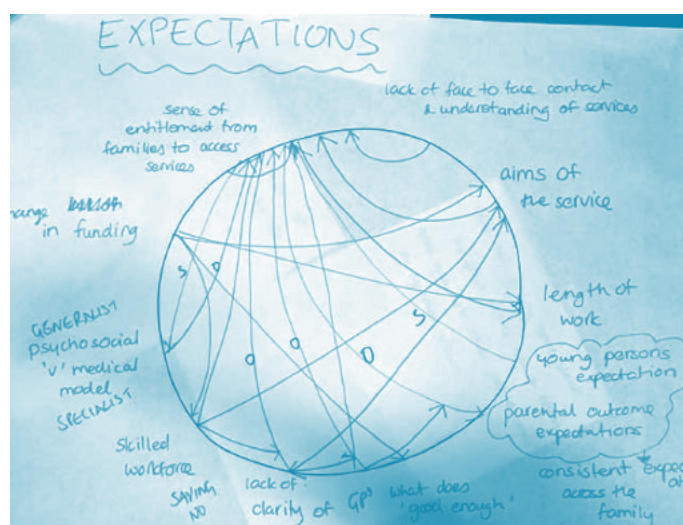 EXPECTATIONS
lack of face to face contact
& understanding of services
sense of
entitlement from
families to access
services
aims of
the service
in funding
length of
work
GENERALIST
psychosocial
'v' medical
model
SPECIALIST
young persons
expectation
parental outcome
expectations
Skilled
workforce
SAYING
NO
lack of
clarity of GPs
what does
'good enough'
consistent
across the
family
S
O
O
O
O
S